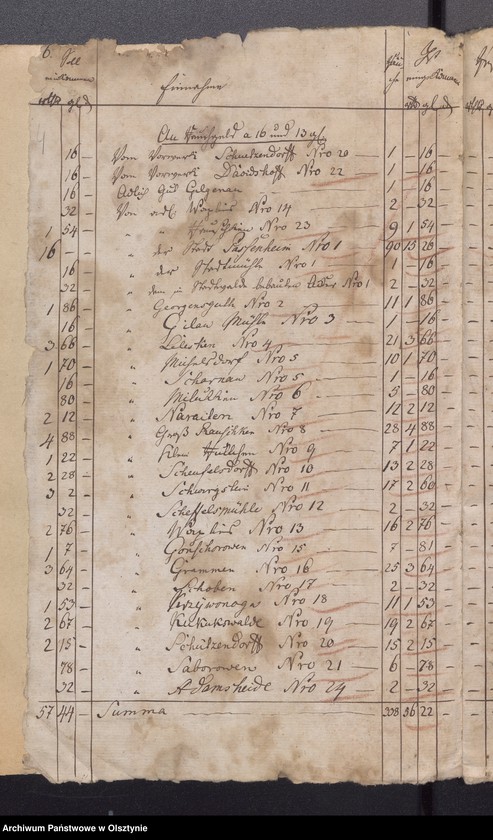 6.
Soll
einkommen
Einnahme
Ist
eingekommen
An Rauchgeld a 16 und 13 gl
16 — Vom Vorwerk Schuetzendorff Nro 20 — 1 — 16
16 — Vom Vorwerk Davidshoff Nro 22 — 1 — 16
16 Adlich Gut Gilgenau 1 — 16
32 — Von adl. Nro 14 — 2 — 32
1 54 — " Nro 23 9 1 54
16 — — " der Stadt Passenheim Nro 1 90 15 26
16 — " der Stadtmühle Nro 1 1 — 16
32 — " dem in Stadtwalde Nro 1 2 — 32
1 86 — " Georgensguth Nro 2 11 1 86
16 — " Gilau Mühle Nro 3 — 1 — 16
3 66 — " Leleskan Nro 4 21 3 66
1 70 — " Michelsdorf Nro 5 10 1 70
16 — " Nro 5 1 — 16
80 — " Milukkien Nro 6 5 — 80
2 12 — " Naraiten Nro 7 12 2 12
4 88 — " Groß Rauschken Nro 8 28 4 88
1 22 — " Nro 9 7 1 22
2 28 — " Scheufelsdorff Nro 10 13 2 28
3 2 — " Nro 11 17 2 60
32 — " Scheffelsmühle Nro 12 2 — 32
2 76 — " Nro 13 16 2 76
1 7 — " Nro 15 7 — 81
3 64 — " Grammen Nro 16 25 3 64
32 — " Schoben Nro 17 2 — 32
1 53 — " Nro 18 11 1 53
2 67 — " Kukukswalde Nro 19 19 2 67
2 15 — " Schützendorff Nro 20 15 2 15
78 — " Saborowen Nro 21 6 — 78
32 — " Adamsheide Nro 24 2 — 32
57 44 — Summa 338 36 22
Archiwum Państwowe w Olsztynie